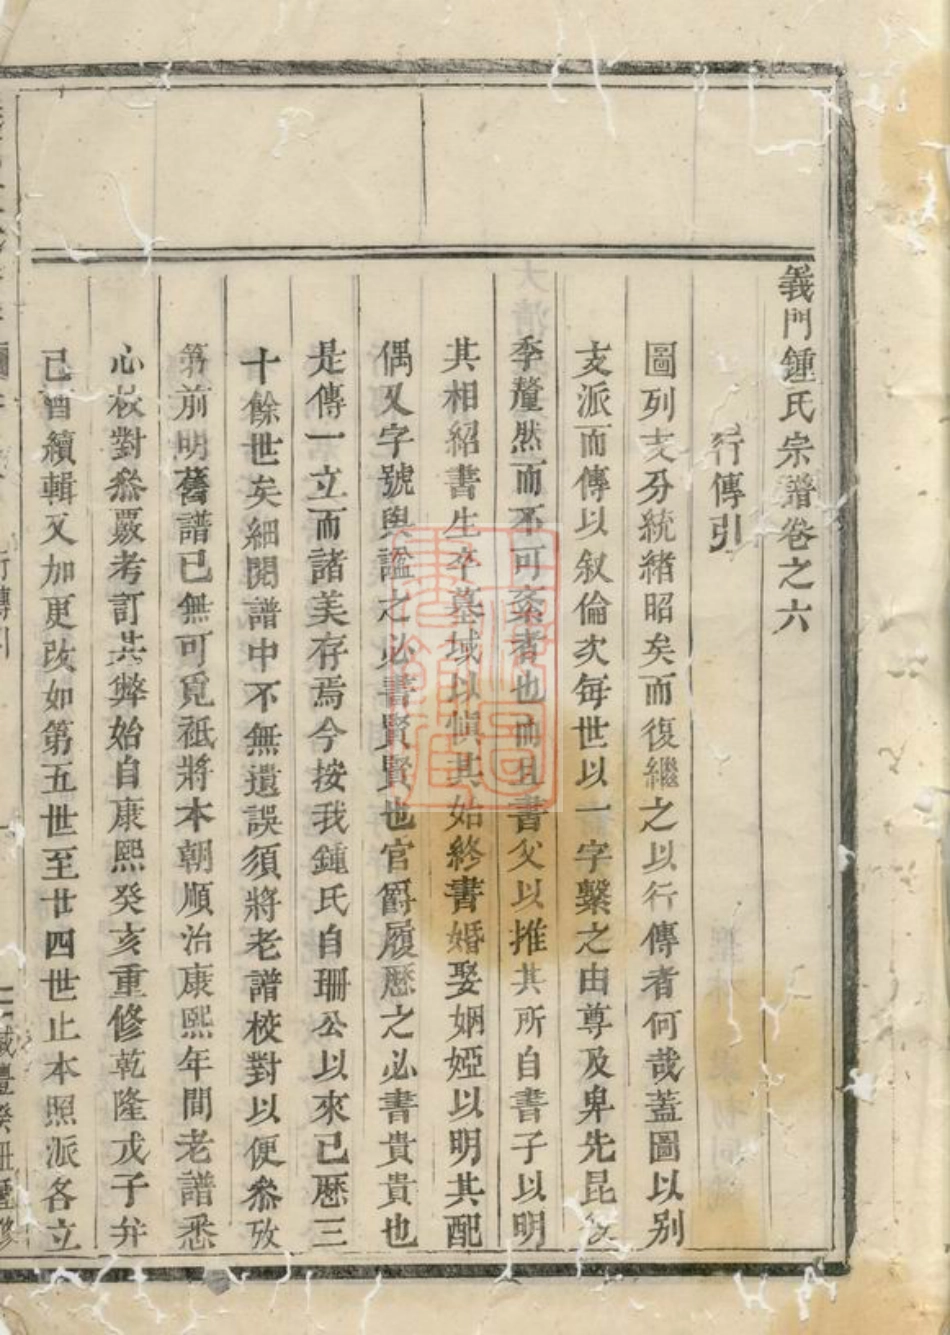 義門鍾氏宗譜卷之六
行傳引
圖列支分統緒昭矣而復繼之以行傳者何哉蓋圖以别
支派而傳以叙倫次每世以一字繫之由尊及卑先昆後
季釐然而不可紊者也而且書父以推其所自書子以明
其相紹書生卒墓域以慎其始終書婚娶姻婭以明其配
偶又字號與諡之必書賢賢也官爵履歷之必書貴貴也
是傳一立而諸美存焉今按我鍾氏自珊公以來已歷三
十餘世矣細閱譜中不無遺誤須將老譜校對以便叅攷
第前明舊譜已無可覓祗將本朝順治康熙年間老譜悉
心校對叅覈考訂其弊始自康熙癸亥重修乾隆戊子并
己酉續輯又加更改如第五世至廿四世止本照派各立
行傳引
咸豐癸丑重修